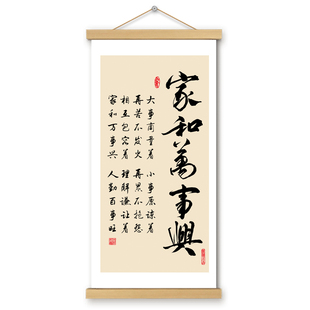 家和萬事興
大事商量着 小事原谅着
再苦不发火 再累不抱怨
相互包容着 理解谦让着
家和万事兴 人勤百事旺